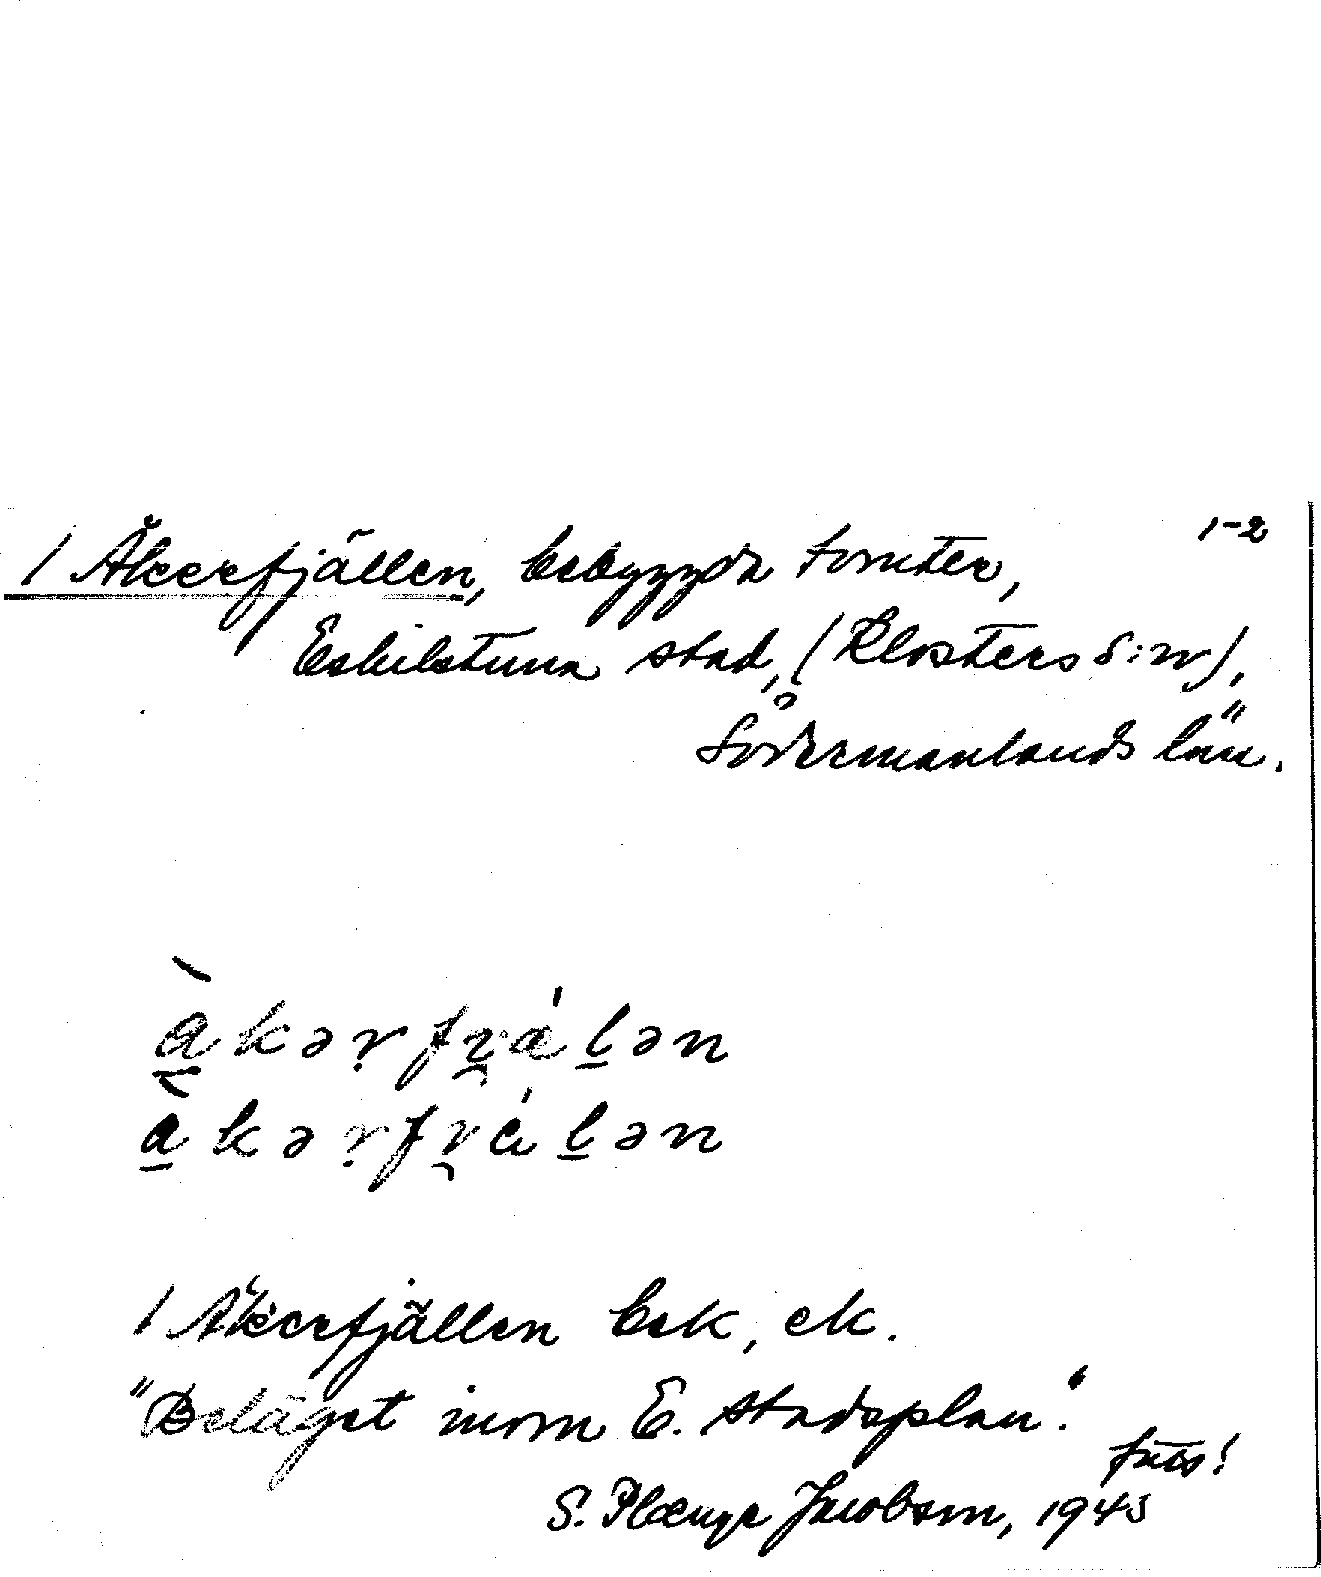 1-2
1 Åkerfjällen, bebyggda tomter,
Eskilstuna stad, (Klosters s:n),
Södermanlands län.
àkəṛfɪ̯álən
àkəṛfɪ̯álən
1 Åkerfjällen bek, ek.
"Beläget inom E. stadsplan."
forts!
S. Plænge Jacobson, 1945